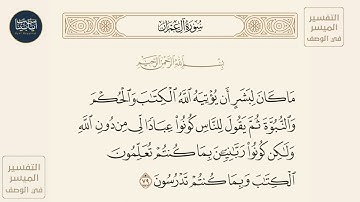 التفسير
الميسر
في الوصف
سورة آل عمران
بسم الله الرحمن الرحيم
مَا كَانَ لِبَشَرٍ أَن يُؤْتِيَهُ اللَّهُ الْكِتَابَ وَالْحُكْمَ
وَالنُّبُوَّةَ ثُمَّ يَقُولَ لِلنَّاسِ كُونُوا عِبَادًا لِّي مِن دُونِ اللَّهِ
وَلَٰكِن كُونُوا رَبَّانِيِّينَ بِمَا كُنتُمْ تُعَلِّمُونَ
الْكِتَابَ وَبِمَا كُنتُمْ تَدْرُسُونَ ٧٩
التفسير
الميسر
في الوصف